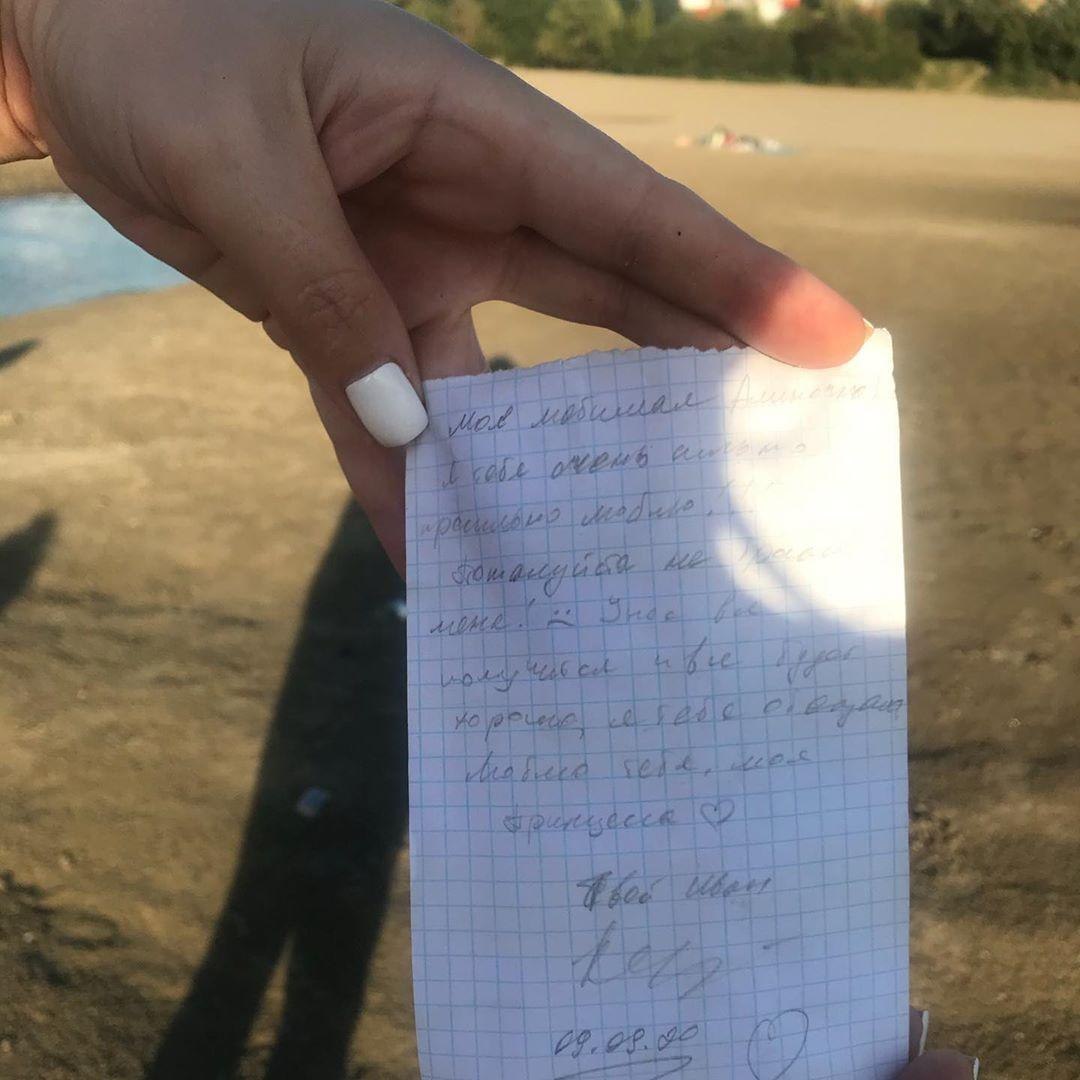 Моя любимая Алиночка!
Я тебя очень сильно
пресильно люблю!!!
Пожалуйста не бросай
меня! У нас все
получится и все будет
хорошо, я тебе обещаю
Люблю тебя, моя
Принцесса ♡
Твой Иван
09.09.20